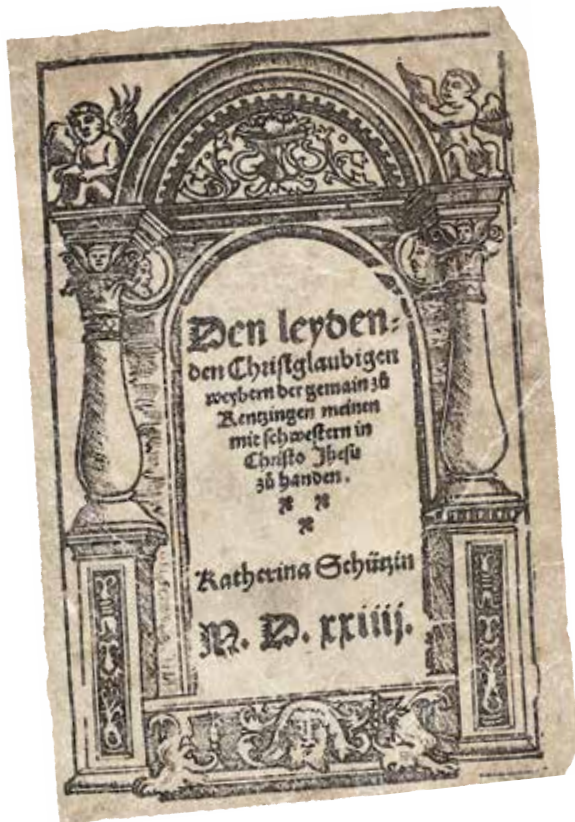 Den leyden=
den Christglaubigen
weybern der gemain zů
Kentzingen meinen
mit schwestern in
Christo Jhesu
zů handen.
Katherina Schützin
M. D. xxiiij.